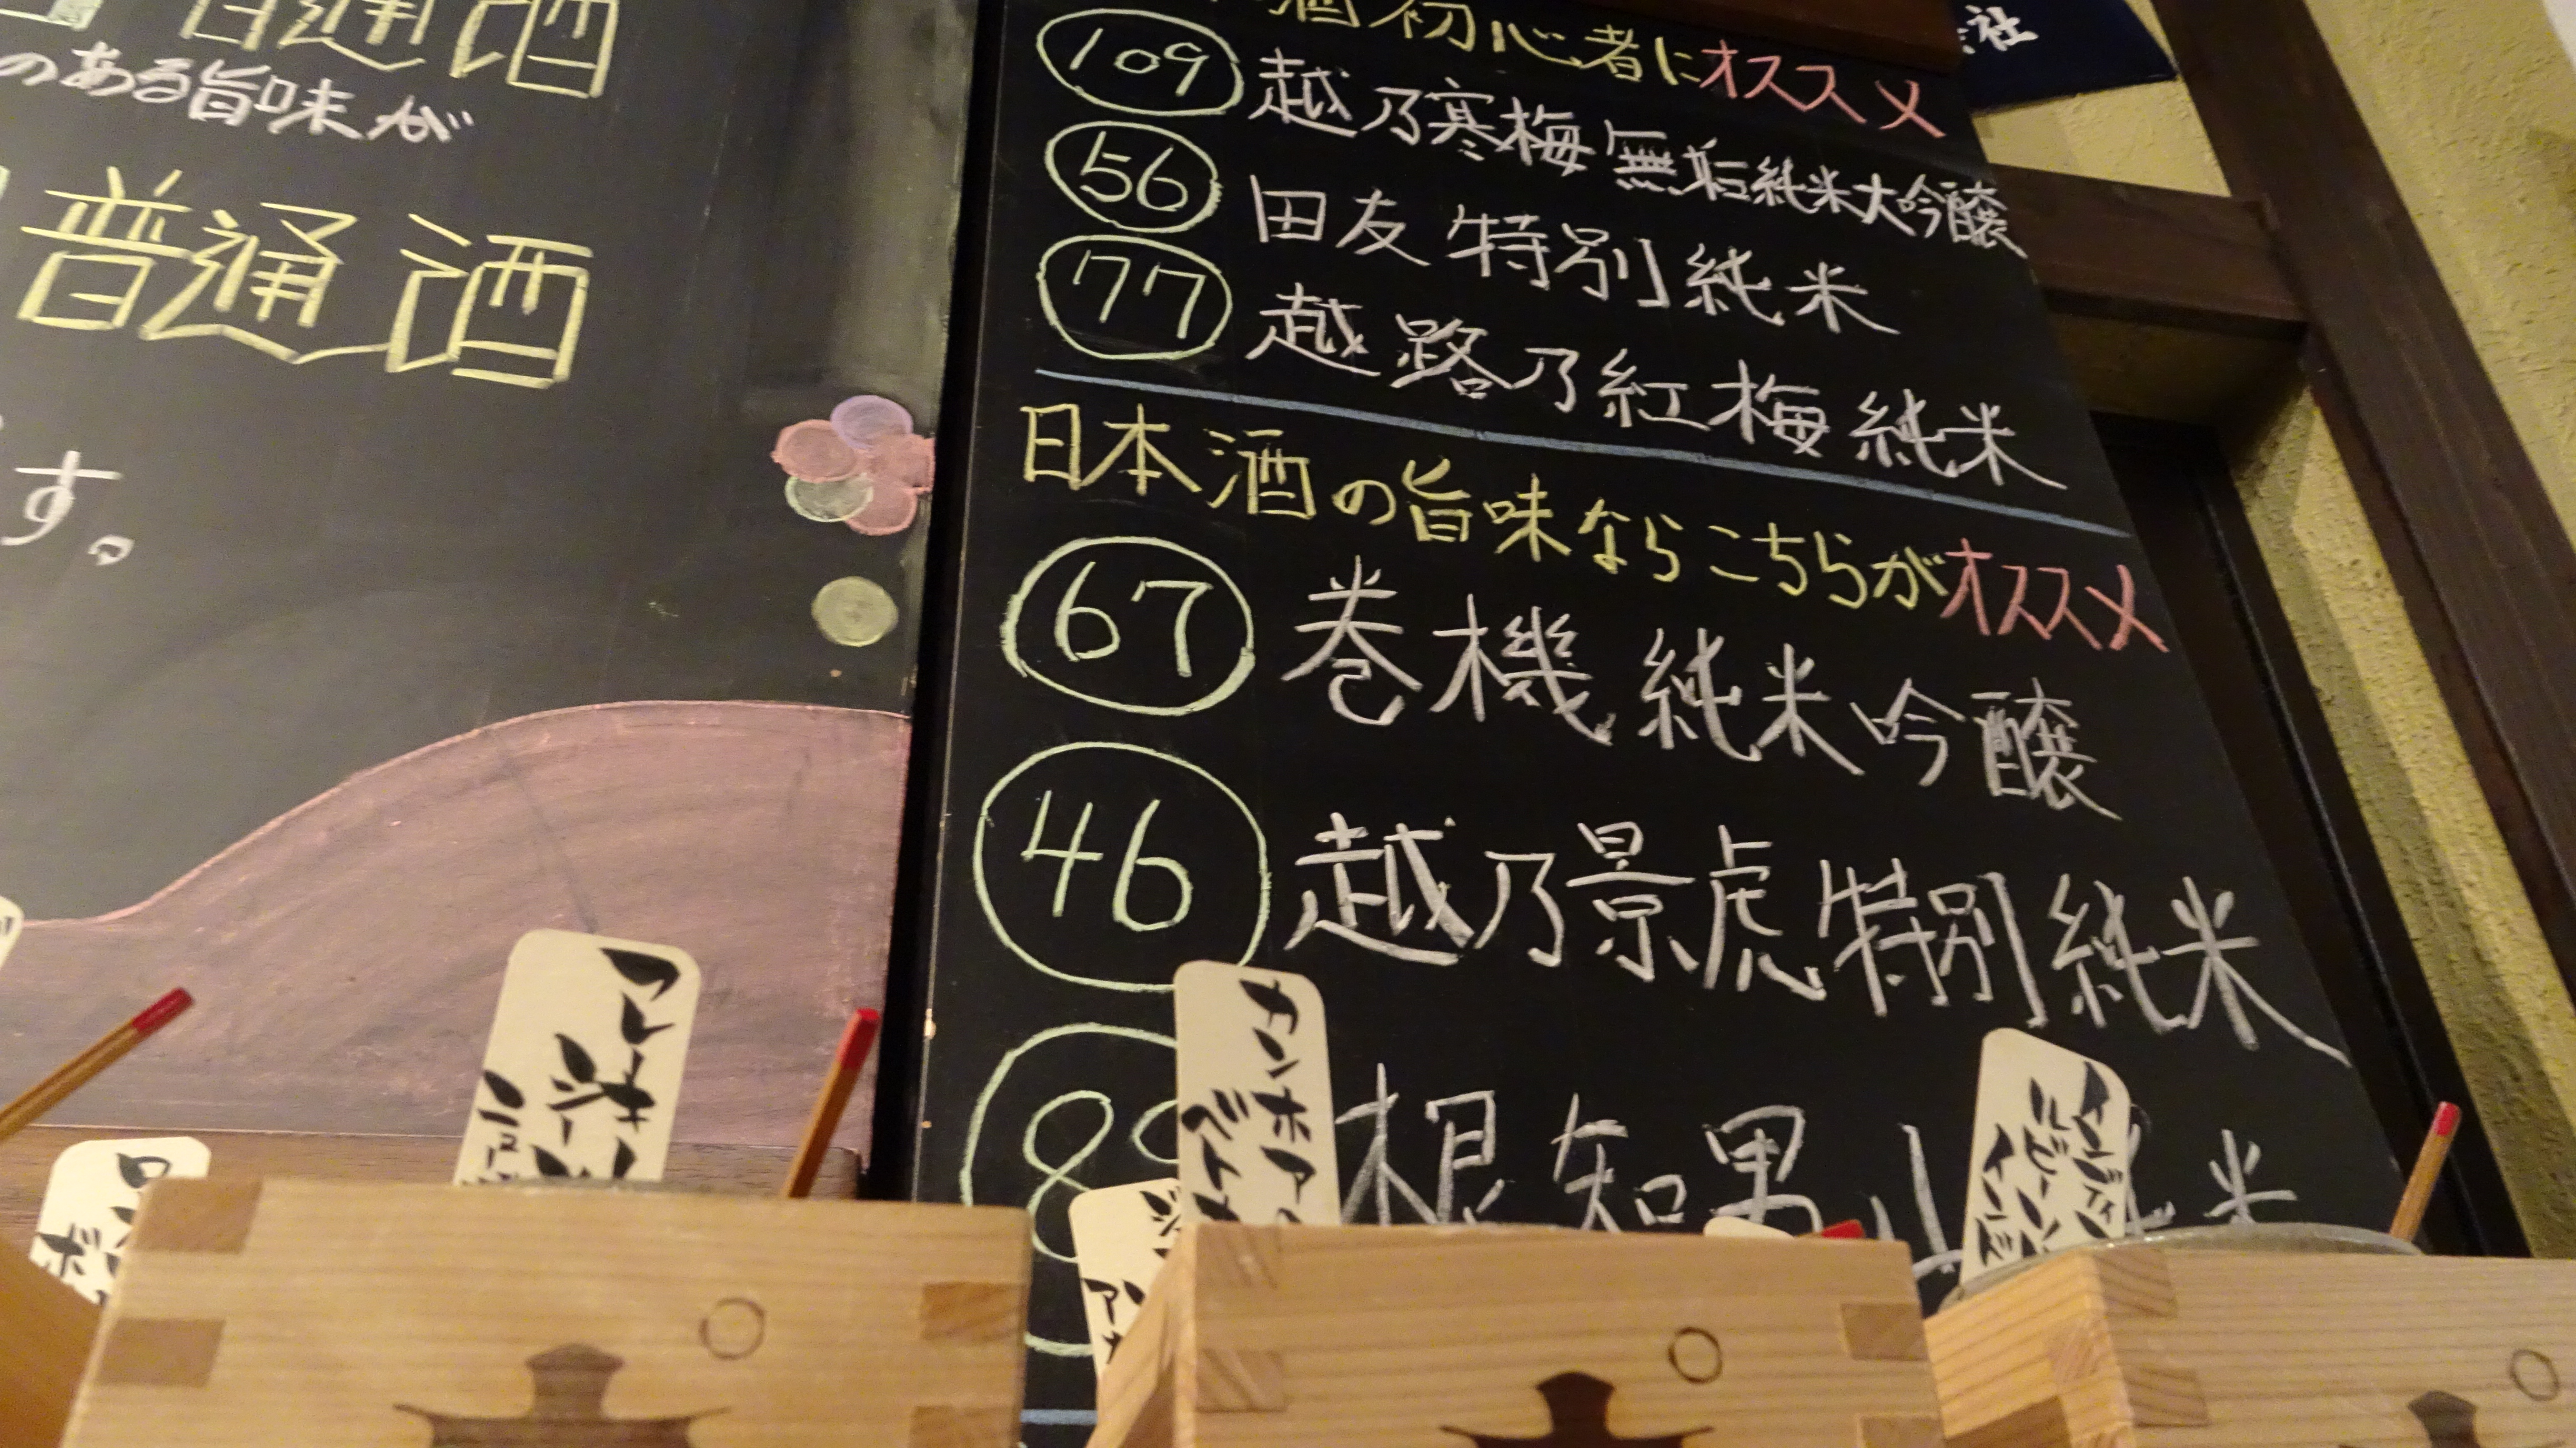 普通酒
のある旨味が
普通酒
す。
社
酒初心者にオススメ
109 越乃寒梅 無垢純米大吟醸
56 田友 特別純米
77 越路乃紅梅 純米
日本酒の旨味ならこちらがオススメ
67 巻機 純米吟醸
46 越乃景虎 特別純米
根知男山 純米
マレーシー
カンホアの
インディ
ルビー
インド